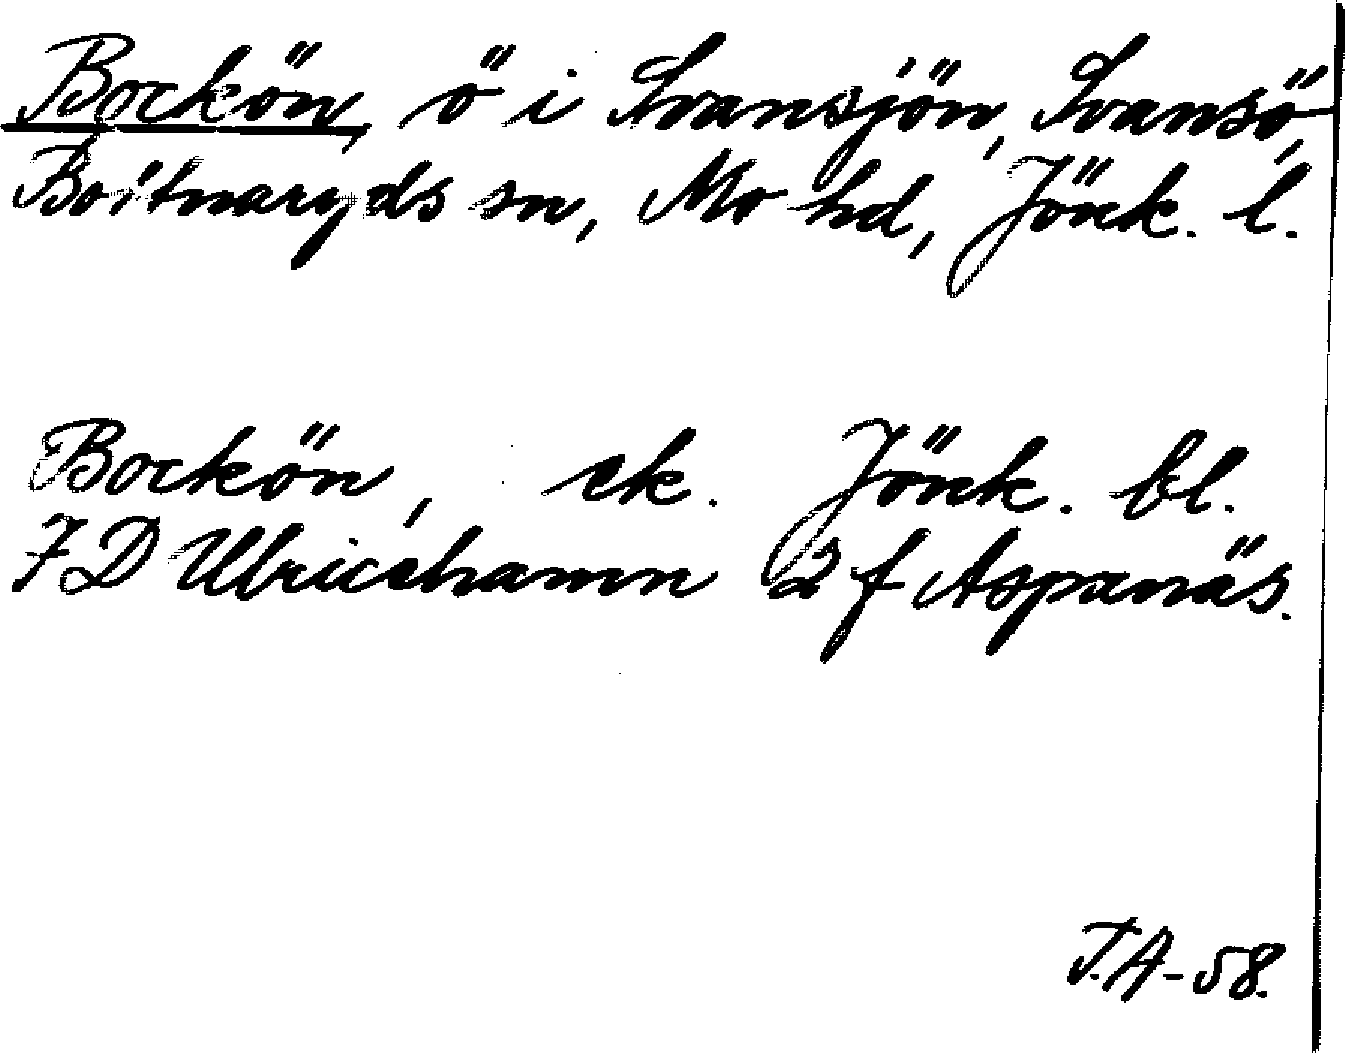 Bockön, ö i Svansjön, Svansö,
Bottnaryds sn, Mo hd, Jönk. l.
Bockön, ek. Jönk. bl.
7 D Ulricehamn 2 f Aspanäs.
T.A-58.